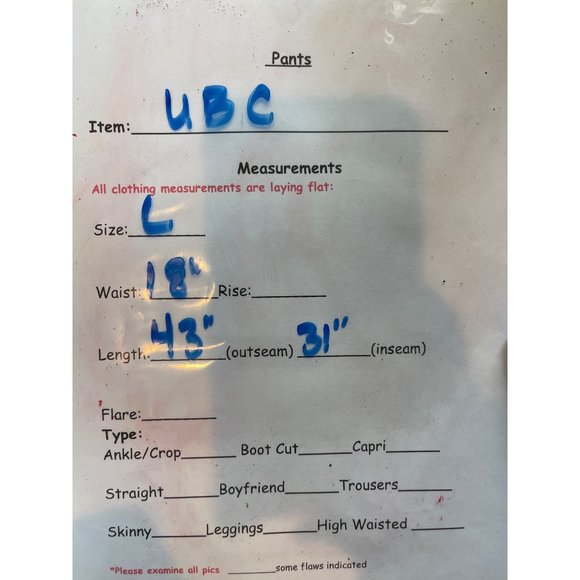 Pants
Item: UBC
Measurements
All clothing measurements are laying flat:
Size: L
Waist: 18" Rise:
Length: 43" (outseam) 31" (inseam)
Flare:
Type:
Ankle/Crop Boot Cut Capri
Straight Boyfriend Trousers
Skinny Leggings High Waisted
*Please examine all pics some flaws indicated